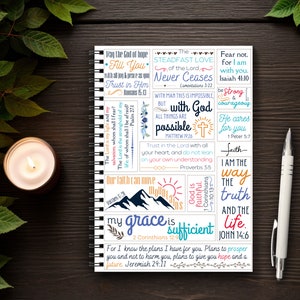 May the God of hope
Fill You
with all joy & peace as you
Trust in Him
Romans 15:13
The
STEADFAST LOVE
of the Lord
Never Ceases
Lamentations 3:22
Fear not.
For I am
with you.
Isaiah 41:10
be
Strong
&
courageous
WITH MAN THIS IS IMPOSSIBLE
BUT with God
ALL THINGS ARE
possible
MATTHEW 19:26
He cares
for you
1 Peter 5:7
Trust in the Lord with all
your heart, and do not lean
on your own understanding.
Proverbs 3:5
faith
I AM THE
way
THE
truth
AND THE
life.
JOHN 14:6
God is
faithful
1 Corinthians
my grace is
sufficient
2 Corinthians 12:9
For I know the plans I have for you. Plans to prosper
you and not to harm you, plans to give you hope and a
future. Jeremiah 29:11